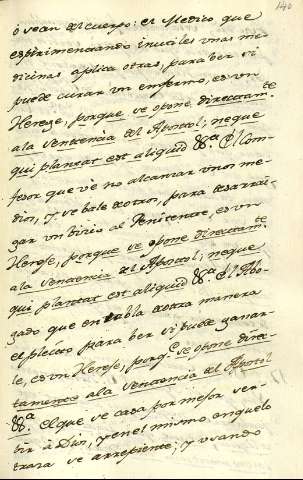 140
ó sean del cuerpo: el Medico que
esperimentando inutiles unas me-
dicinas aplica otras, para ber si
puede curar un enfermo, es un
Herege, porque se opone directamte
a la sentencia del Apostol; neque
qui plantat est aliquid &a. El Con-
fesor que vè no alcanzar unos me-
dios, y se bale de otros, para desarrai-
gar un bicio al Penitente, es un
Herege, porque se opone directamte
a la sentencia del Apostol; neque
qui plantat est aliquid &a. El Abo-
gado que entabla de otra manera
el pleito para ber si puede ganar-
le, es un Herege, porqe se opone direc-
tamente a la sentencia del Apostol
&a. El que se casa por mejor ser-
bir à Dios, y en el mismo anguelo
trara se arrepiente; y usando